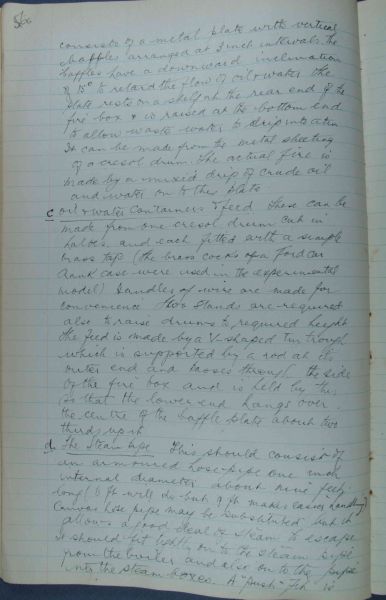 56a
consists of a metal plate with vertical
baffles arranged at 3 inch intervals. The
baffles have a downward inclination
of 15° to retard the flow of oil & water. The
plate rests on a shelf at the rear end of the
fire box & is raised at the bottom end
to allow waste water to drip into a tin
It can be made from the metal sheeting
of a cresol drum. The actual fire is
made by a mixed drip of crude oil
and water on to this plate
c oil & water Containers & feed These can be
made from one cresol drum cut in
halves, and each fitted with a simple
brass tap (the brass cocks of a Ford car
Crank case were used in the experimental
model) Handles of wire are made for
convenience Two stands are required
also to raise drums to required height
The feed is made by a V-shaped tin trough
which is supported by a rod at its
outer end and passes through the side
of the fire box and is held by this
so that the lower end hangs over
the centre of the baffle plate about two
thirds up it
d The Steam pipe This should consist of
an armoured hose-pipe one inch
internal diameter about nine feet
long (6 ft will do but 9 ft makes easier handling)
Canvas hose pipe may be substituted but it
allows a good deal of steam to escape
It should fit on to the steam pipe
from the boiler and also on to the pipe
into the steam boxes. A "push" fit is